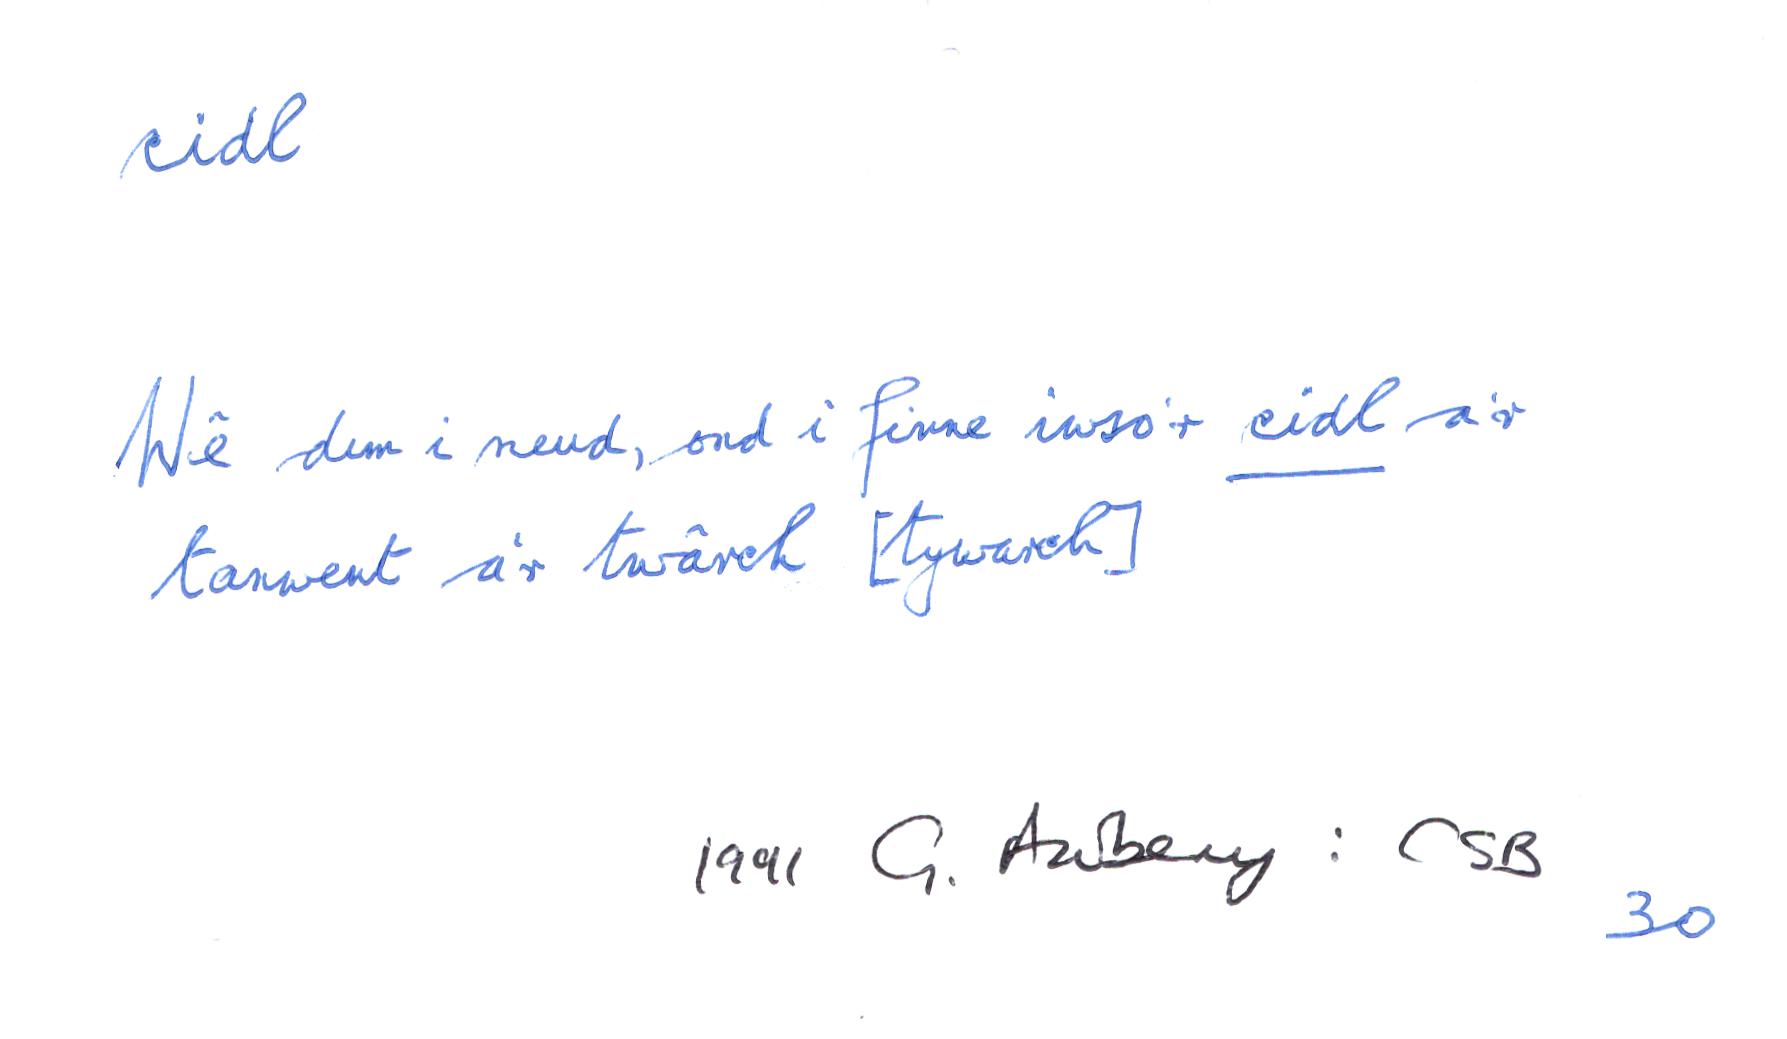 cidl
Wê dim i neud, ond i finne iwso'r cidl a'r
tanwent a'r twârch [tywarch]
1991 G. Awbery : CSB
30